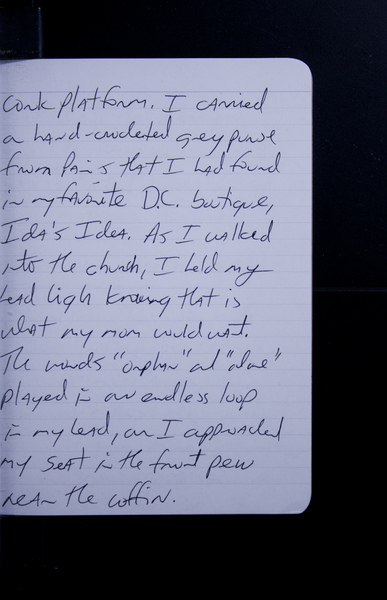 cork platform. I carried
a hand-crocheted grey purse
from Paris that I had found
in my favorite D.C. boutique,
Ida's Idea. As I walked
into the church, I held my
head high knowing that is
what my mom would want.
The words "orphan" and "alone"
played in an endless loop
in my head, as I approached
my seat in the front pew
near the coffin.